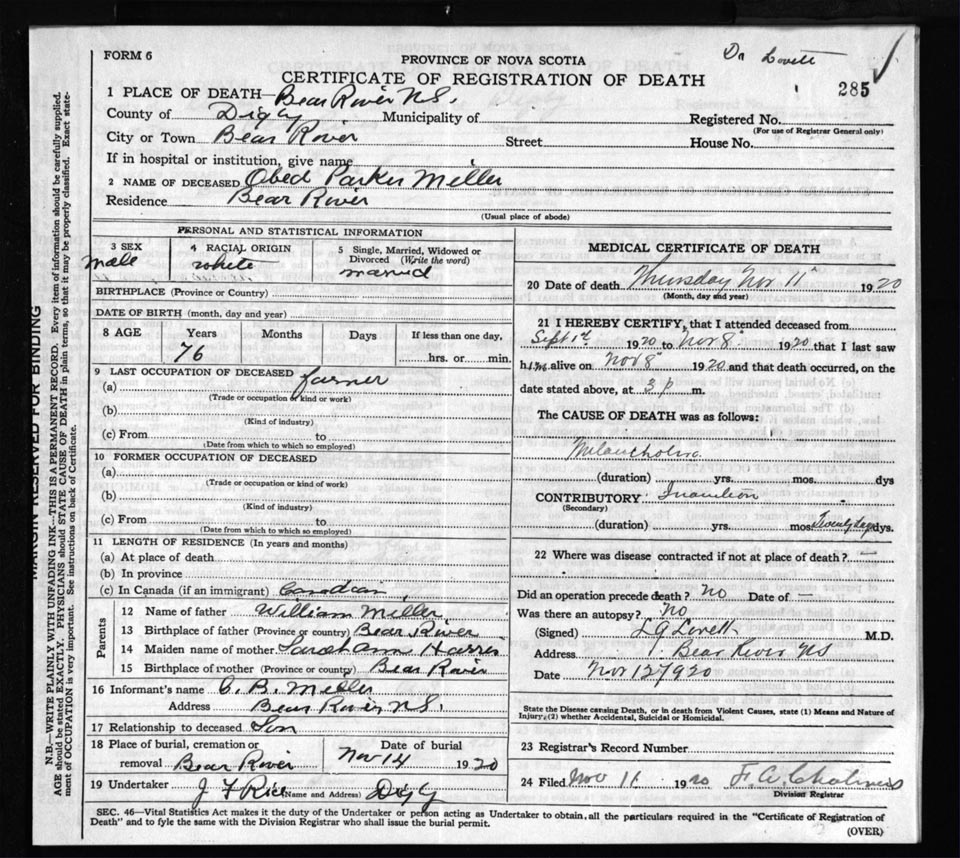 FORM 6
PROVINCE OF NOVA SCOTIA
Dr Lovett
CERTIFICATE OF REGISTRATION OF DEATH
285
1 PLACE OF DEATH—Bear River N.S.
County of Digby Municipality of Registered No.
(For use of Registrar General only)
City or Town Bear River Street House No.
If in hospital or institution, give name
2 NAME OF DECEASED Obed Parker Miller
Residence Bear River
(Usual place of abode)
PERSONAL AND STATISTICAL INFORMATION
3 SEX male
4 RACIAL ORIGIN white
5 Single, Married, Widowed or Divorced (Write the word)
married
BIRTHPLACE (Province or Country)
DATE OF BIRTH (month, day and year)
8 AGE Years Months Days If less than one day,
76 hrs. or min.
9 LAST OCCUPATION OF DECEASED
(a) farmer
(Trade or occupation of kind or work)
(b)
(Kind of industry)
(c) From to
(Date from which to which so employed)
10 FORMER OCCUPATION OF DECEASED
(a)
(Trade or occupation or kind of work)
(b)
(Kind of industry)
(c) From to
(Date from which to which so employed)
11 LENGTH OF RESIDENCE (In years and months)
(a) At place of death
(b) In province
(c) In Canada (if an immigrant) Canadian
Parents
12 Name of father William Miller
13 Birthplace of father (Province or country) Bear River
14 Maiden name of mother Sarah Ann Harris
15 Birthplace of mother (Province or country) Bear River
16 Informant's name C. B. Miller
Address Bear River N.S.
17 Relationship to deceased Son
18 Place of burial, cremation or removal Bear River
Date of burial Nov 14 1920
19 Undertaker J F Rice (Name and Address) Digby
MEDICAL CERTIFICATE OF DEATH
20 Date of death Thursday Nov 11 1920
(Month, day and year)
21 I HEREBY CERTIFY, that I attended deceased from
Sept 1st 1920 to Nov 8 1920 that I last saw
him alive on Nov 8 1920 and that death occurred, on the
date stated above, at 3 p m.
The CAUSE OF DEATH was as follows:
Melancholia
(duration) yrs. mos. dys
CONTRIBUTORY Inanition
(Secondary)
(duration) yrs. mos. Twenty days dys.
22 Where was disease contracted if not at place of death? —
Did an operation precede death? No Date of —
Was there an autopsy? No
(Signed) L G Lovett M.D.
Address Bear River NS
Date Nov 12 1920
State the Disease causing Death, or in death from Violent Causes, state (1) Means and Nature of
Injury; (2) whether Accidental, Suicidal or Homicidal.
23 Registrar's Record Number
24 Filed Nov 11 1920 F. A. Chalmers
Division Registrar
SEC. 46—Vital Statistics Act makes it the duty of the Undertaker or person acting as Undertaker to obtain, all the particulars required in the "Certificate of Registration of
Death" and to fyle the same with the Division Registrar who shall issue the burial permit.
(OVER)
MARGIN RESERVED FOR BINDING
N.B.—WRITE PLAINLY WITH UNFADING INK—THIS IS A PERMANENT RECORD. Every item of information should be carefully supplied.
AGE should be stated EXACTLY. PHYSICIANS should STATE CAUSE OF DEATH in plain terms, so that it may be properly classified. Exact state-
ment of OCCUPATION is very important. See instructions on back of Certificate.